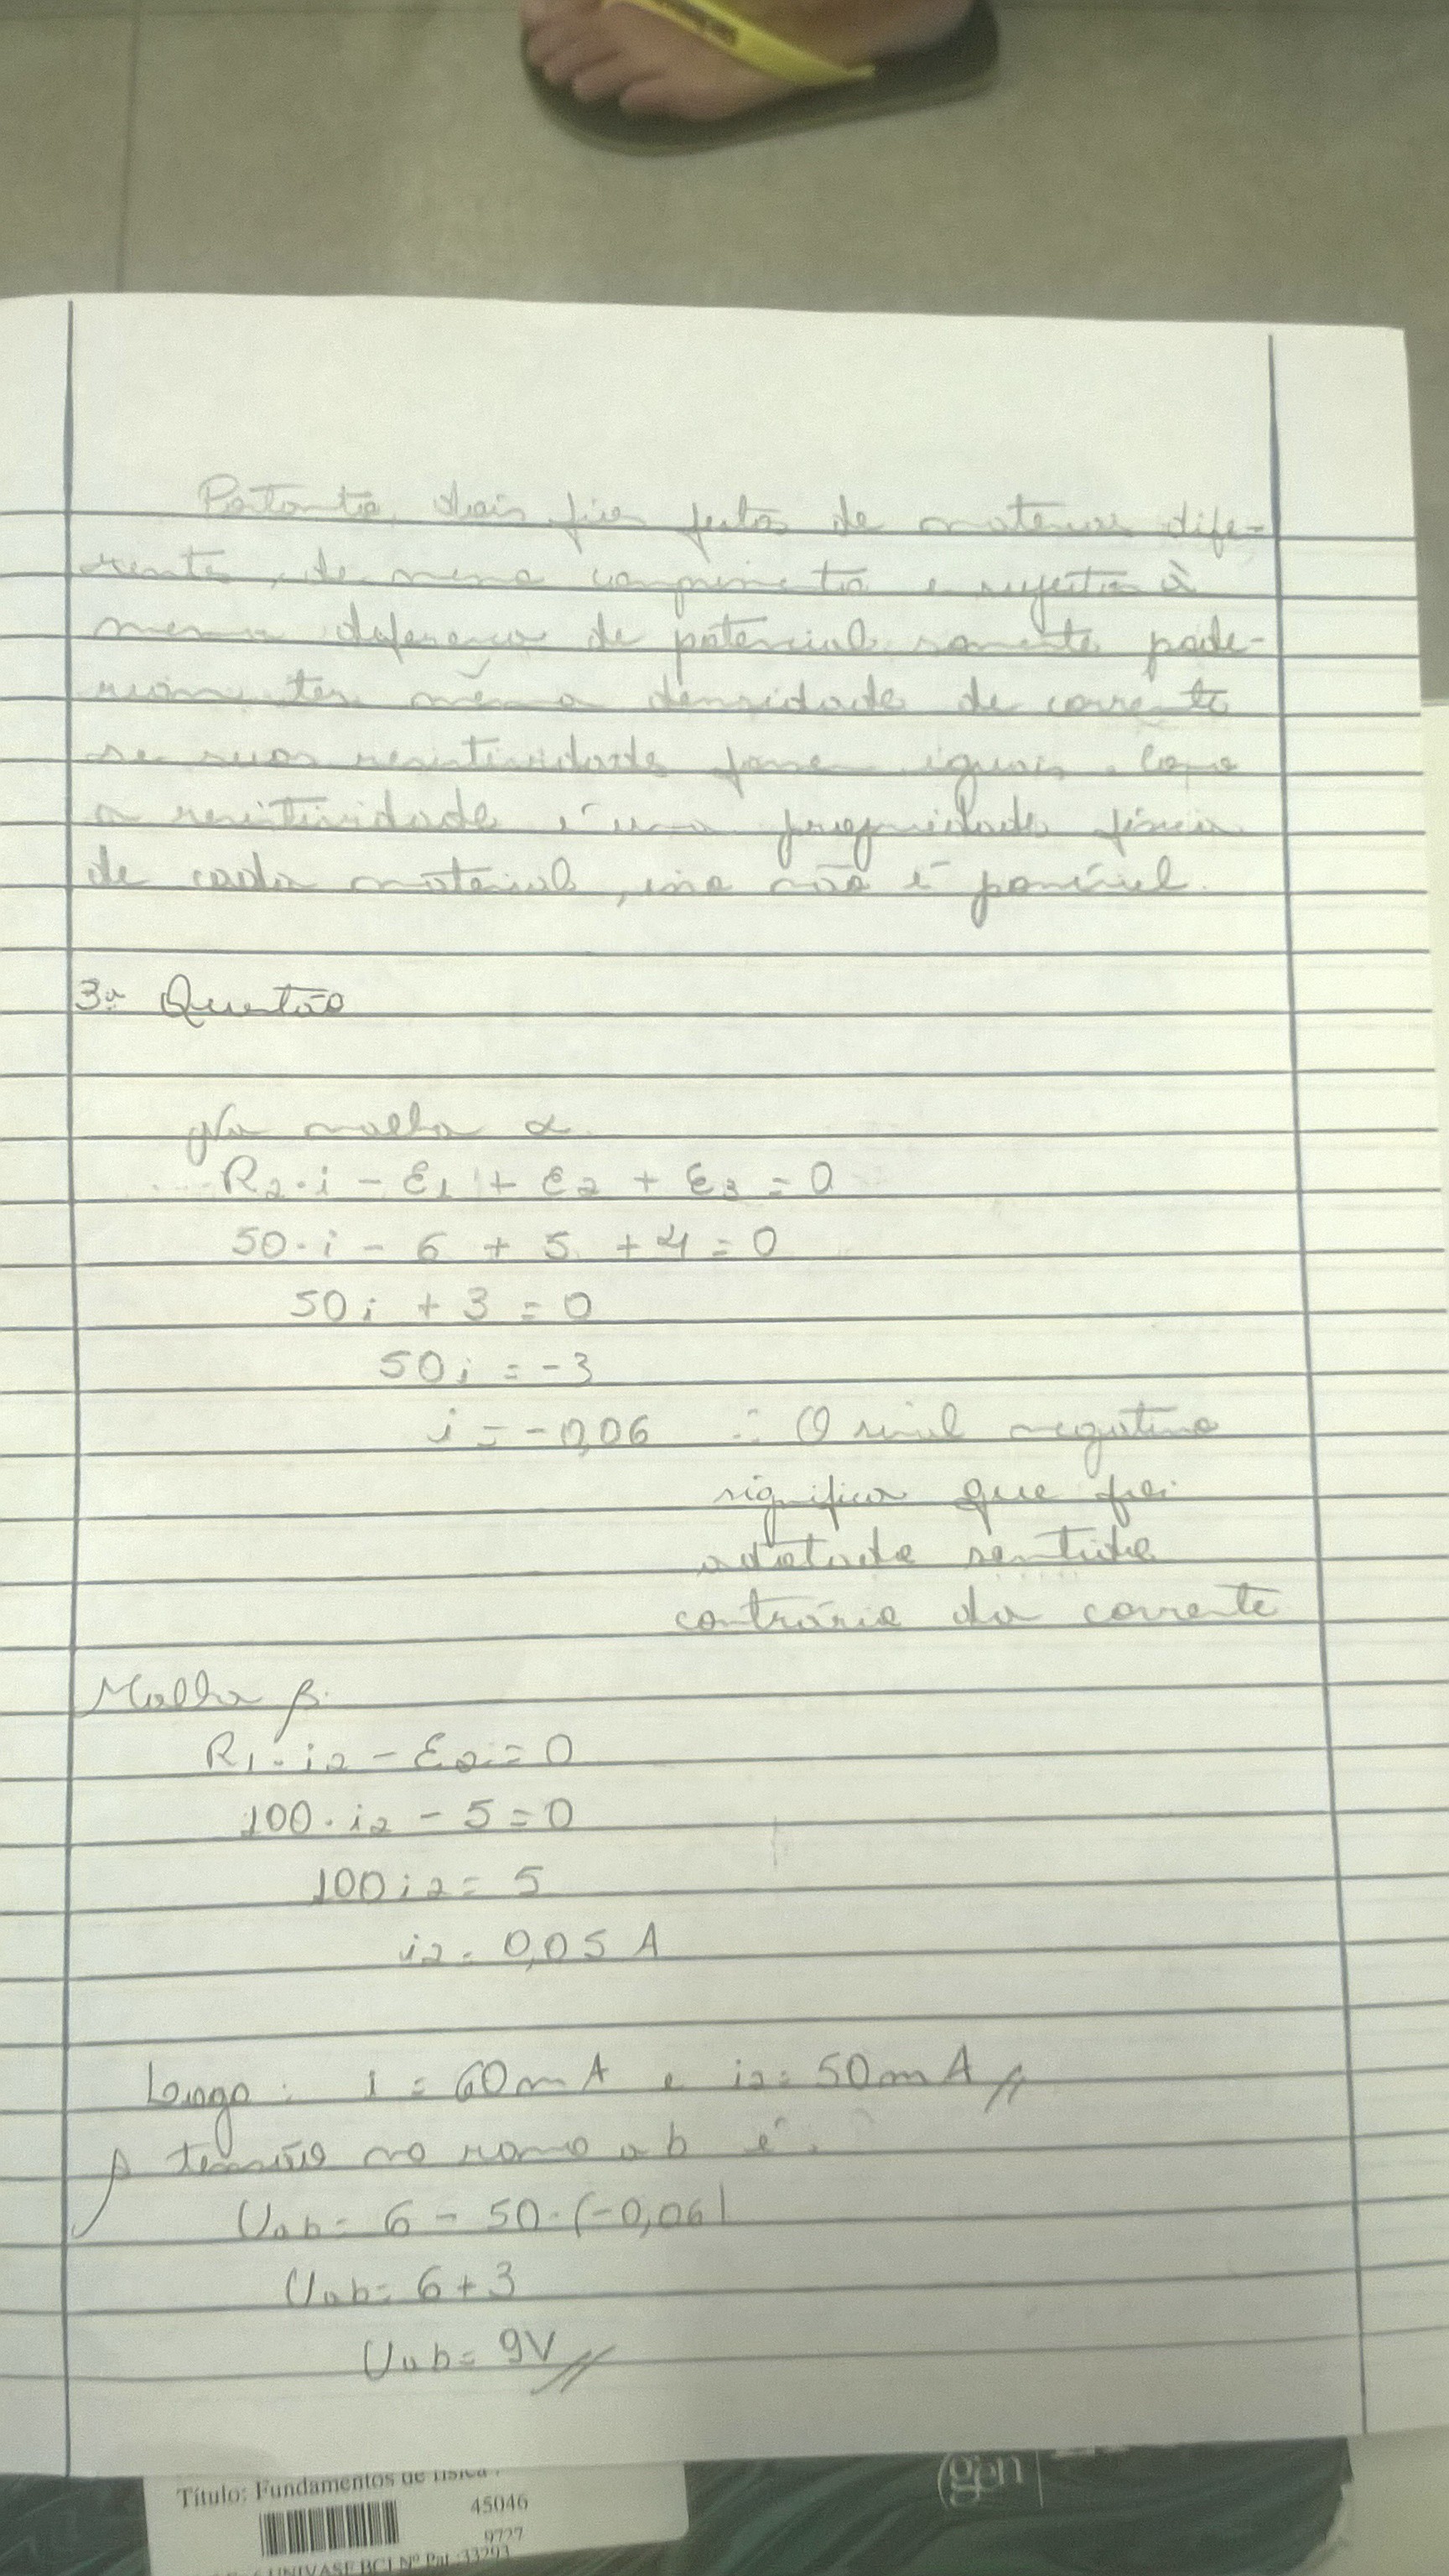 Portanto, dois fios feitos de materiais dife-
rentes, de mesmo comprimento e sujeitos à
mesma diferença de potencial somente pode-
riam ter mesma densidade de corrente
se suas resistividades fossem iguais. Como
a resistividade é uma propriedade física
de cada material, isso não é possível.
3ª Questão
Na malha α
R2·i - ε1 + ε2 + ε3 = 0
50·i - 6 + 5 + 4 = 0
50i + 3 = 0
50i = -3
i = -0,06 ∴ O sinal negativo
significa que foi
adotado sentido
contrário da corrente
Malha β.
R1·i2 - ε2 = 0
100·i2 - 5 = 0
100i2 = 5
i2 = 0,05 A
Longo: i = 60mA e i2 = 50mA //
A tensão no ramo ab é:
Uab = 6 - 50·(-0,06)
Uab = 6 + 3
Uab = 9V //
gen
Título: Fundamentos de física
45046
9727
UNIVASF BCJ Nº Pat.:33293